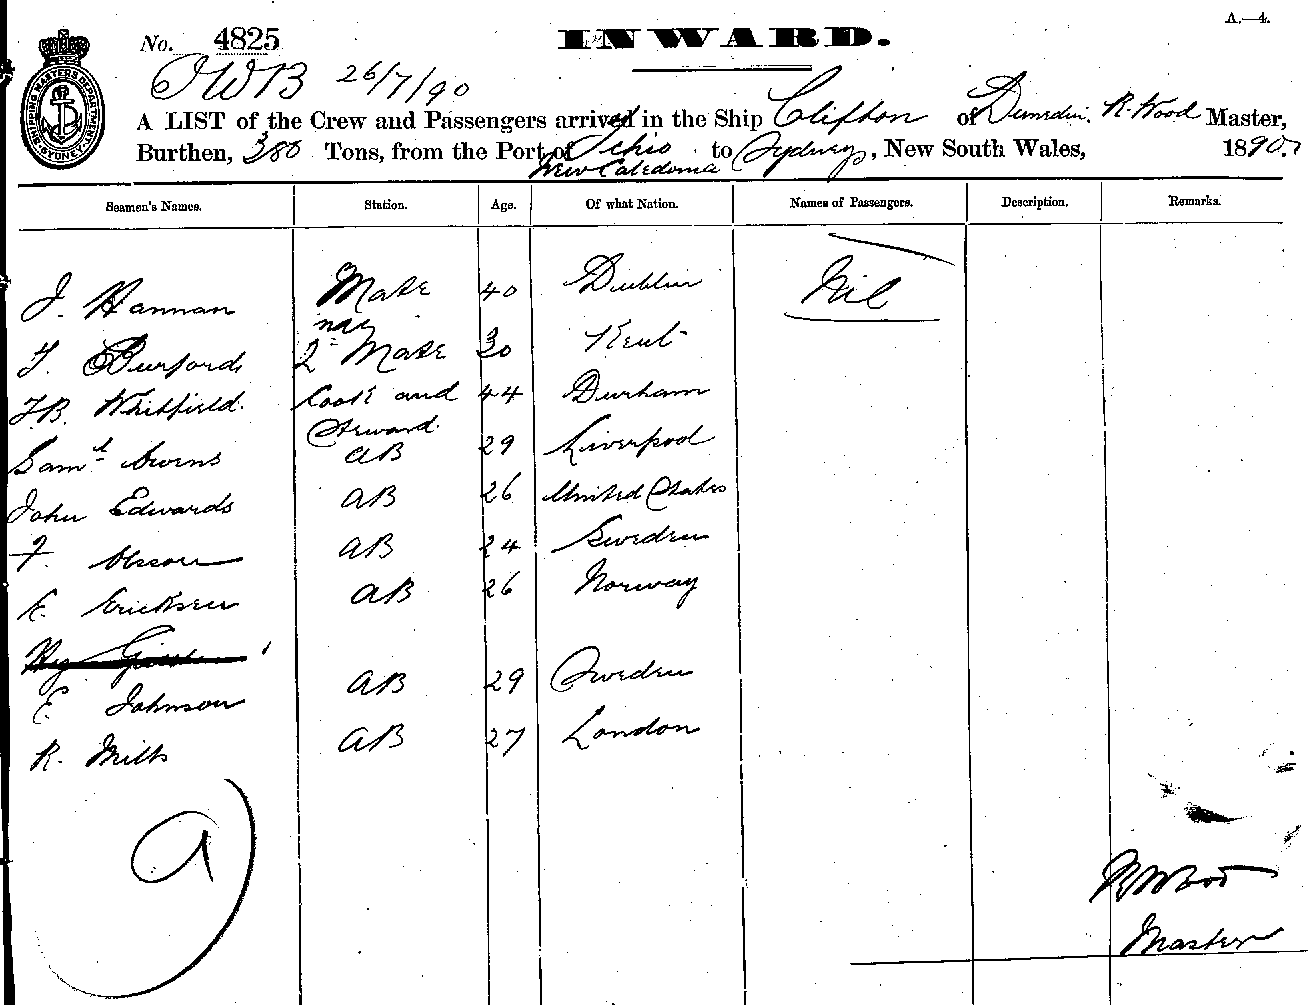 A.—4.
No. 4825 INWARD.
SHIPPING MASTERS DEPARTMENT SYDNEY
26/7/90
A LIST of the Crew and Passengers arrived in the Ship Clifton of Dunedin, R. Wood Master,
Burthen, 380 Tons, from the Port of Tchio to Sydney, New South Wales, 1890.
New Caledonia
Seamen's Names. Station. Age. Of what Nation. Names of Passengers. Description. Remarks.
J. Hannan Mate 40 Dublin Nil
F. Burford 2nd Mate 30 Kent
J.B. Whitfield. Cook and Steward. 44 Durham
Saml Owens AB 29 Liverpool
John Edwards AB 26 United States
F. Olsson AB 24 Sweden
E. Ericksen AB 26 Norway
E. Johnson AB 29 Sweden
R. Mills AB 27 London
9
R Wood
Master